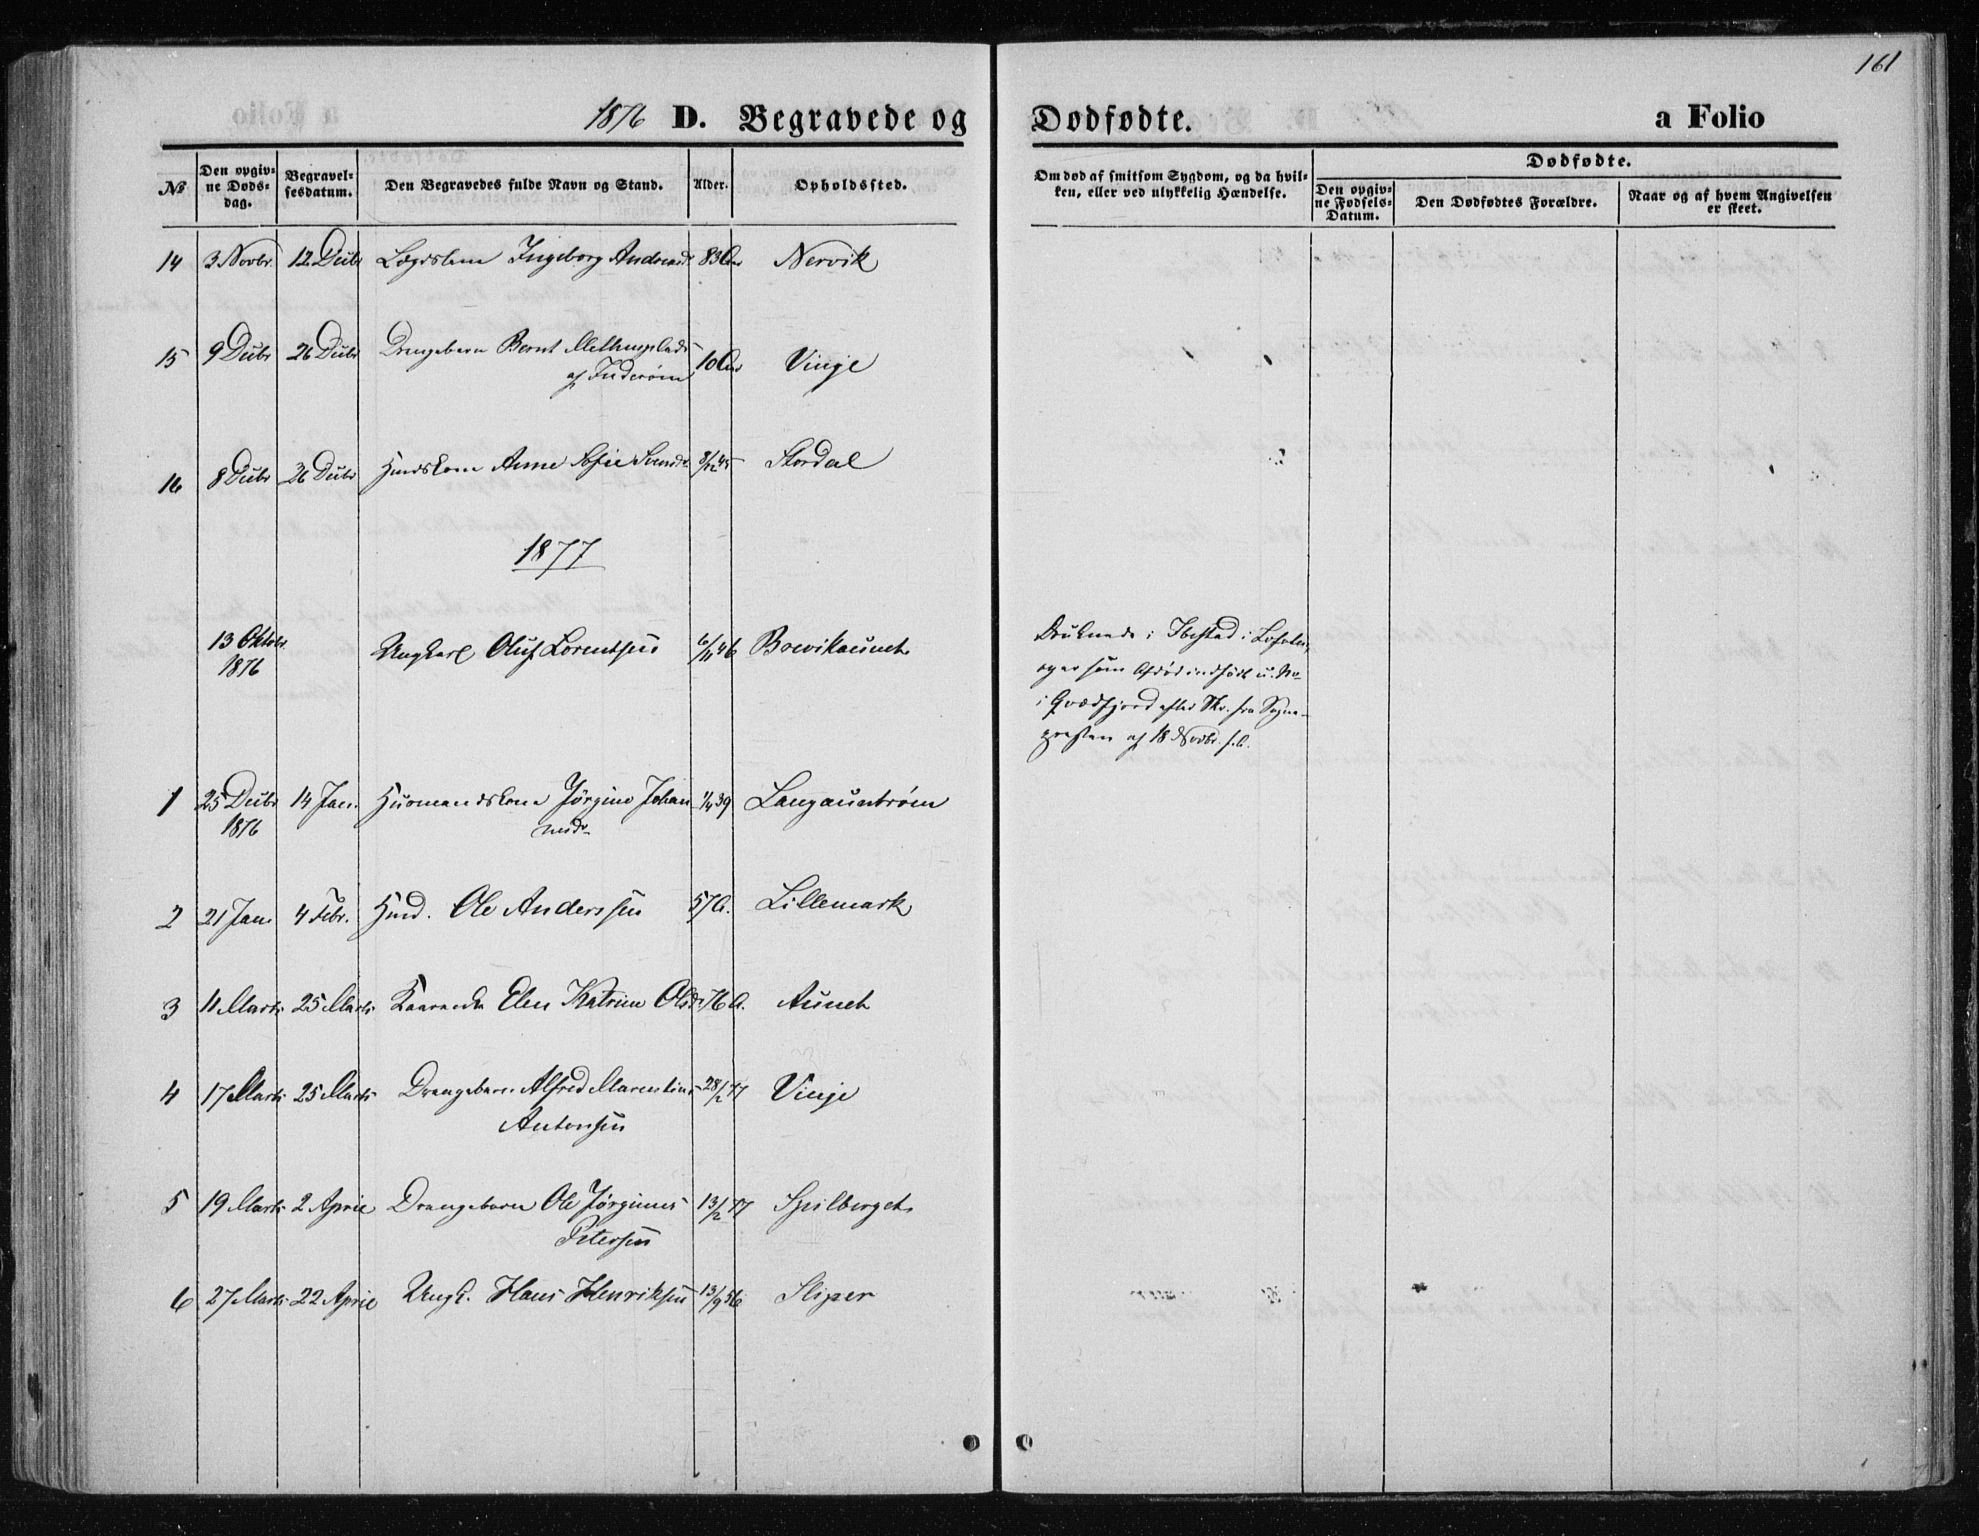 161
1876 D. Begravede og Dødfødte. a Folio
No
Den opgivne Døds-dag.
Begravelsesdatum.
Den Begravedes fulde Navn og Stand.
Alder.
Opholdssted.
Om død af smitsom Sygdom, og da hvilken, eller ved ulykkelig Hændelse.
Dødfødte.
Den opgivne Fødsels-Datum.
Den Dødfødtes Forældre.
Naar og af hvem Angivelsen er skeet.
14 3 Novbr. 12 Dcbr Lægdslem Ingeborg Andreasd. 83 Aar Nervik
15 9 Dcbr 26 Dcbr Drengebarn Bernt
af Inderøen 10 Aar Vinje
16 8 Dcbr 26 Dcbr Kone Anne Sofie 8/12 45 Stordal
1877
13 Oktobr. 1876 Ungkarl Oluf Lorentsen 6/11 46 Brevikaunet
Druknede i Ibestad i
og er som Afdød indført u. No
i Qvædfjord efter Skr. fra Sogne-
præsten af 18 Novbr. f.A.
1 25 Dcbr 1876 14 Jan. Husmandskone Jørgine Johan
nesd. 1/4 39 Langaunet
2 21 Jan. 4 Febr. Husmd. Ole Anderssen 57 A. Lillemark
3 11 Marts 25 Marts Kaarenke Elen Katrine Olsd. 76 A. Aunet
4 17 Marts 25 Marts Drengebarn Alfred Marentius
Antonsen 28/2 77 Vinje
5 19 Marts 2 April Drengebarn Ole Jørginus
Petersen 13/2 77 Spilberget
6 27 Marts 22 April Ungk. Hans Henriksen 13/9 56 Sliper